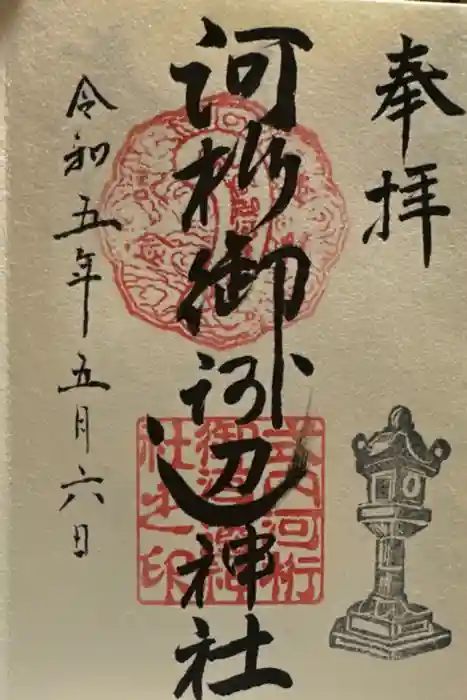 奉拝
河桁御河辺神社
式内河桁
社之印
令和五年五月六日